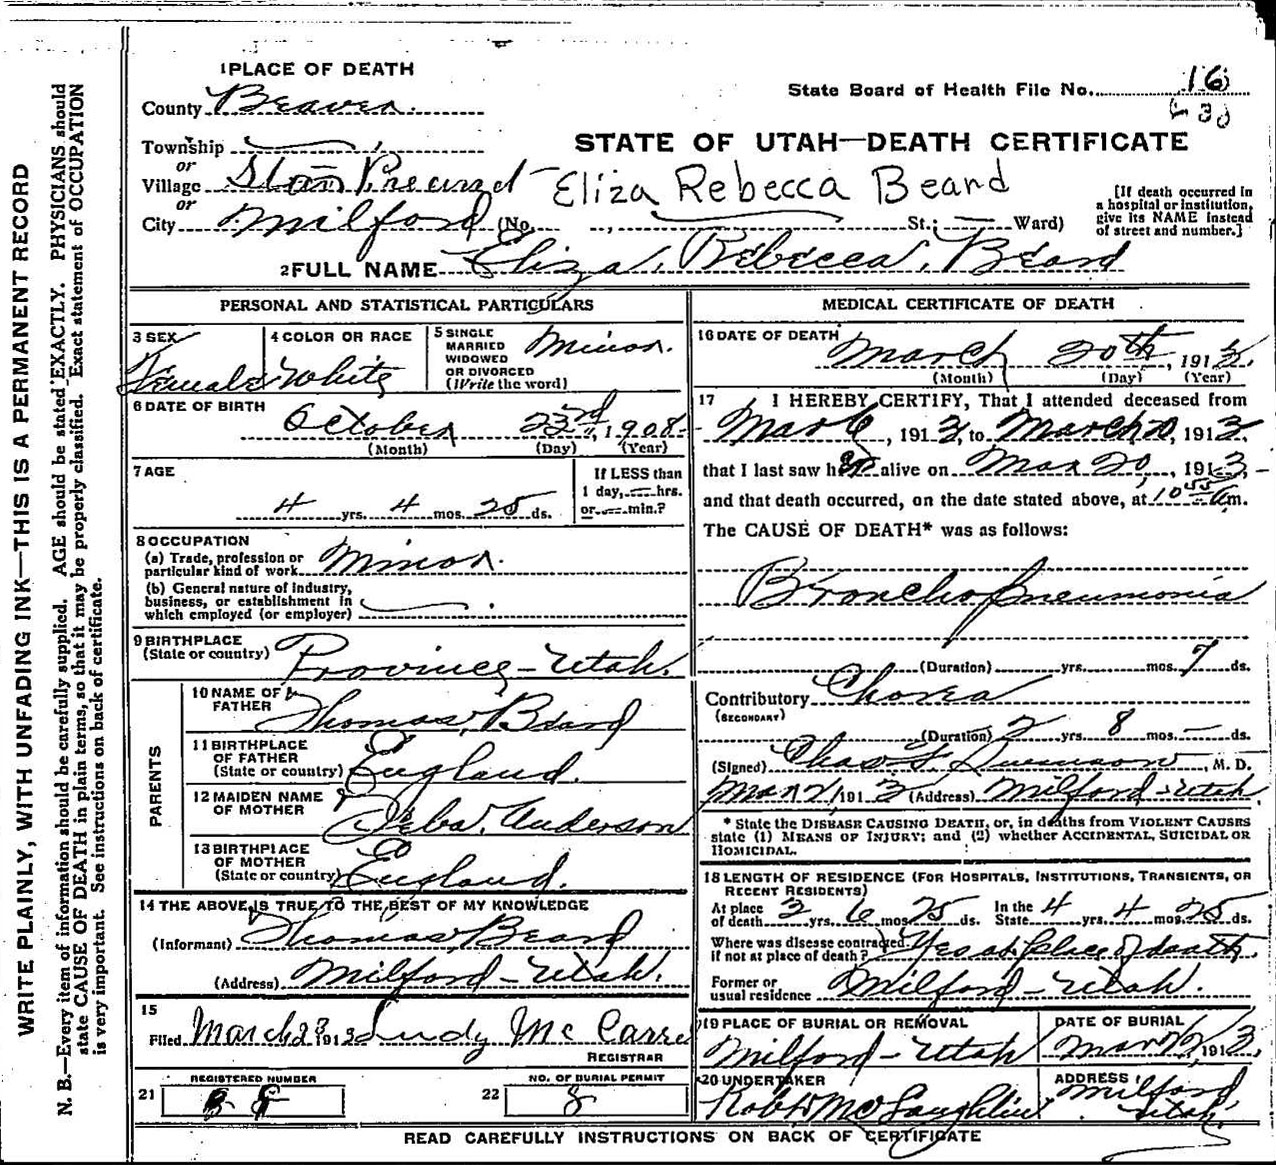 1 PLACE OF DEATH
County Beaver.
State Board of Health File No. 16
STATE OF UTAH—DEATH CERTIFICATE
Township
or
Village Star Precinct
or
City Milford (No. St.; Ward)
Eliza Rebecca Beard
[If death occurred in
a hospital or institution,
give its NAME instead
of street and number.]
2 FULL NAME Eliza, Rebecca, Beard
PERSONAL AND STATISTICAL PARTICULARS
3 SEX Female
4 COLOR OR RACE White
5 SINGLE
MARRIED
WIDOWED
OR DIVORCED
(Write the word) Minor.
6 DATE OF BIRTH
October 23rd, 1908
(Month) (Day) (Year)
7 AGE
4 yrs. 4 mos. 25 ds.
If LESS than
1 day, hrs.
or min.?
8 OCCUPATION
(a) Trade, profession or
particular kind of work Minor.
(b) General nature of industry,
business, or establishment in
which employed (or employer)
9 BIRTHPLACE
(State or country) Province - Utah.
PARENTS
10 NAME OF
FATHER Thomas, Beard
11 BIRTHPLACE
OF FATHER
(State or country) England.
12 MAIDEN NAME
OF MOTHER Anderson
13 BIRTHPLACE
OF MOTHER
(State or country) England.
14 THE ABOVE IS TRUE TO THE BEST OF MY KNOWLEDGE
(Informant) Thomas Beard
(Address) Milford - Utah.
15
Filed March 1913
REGISTRAR
21 REGISTERED NUMBER
22 NO. OF BURIAL PERMIT
8
MEDICAL CERTIFICATE OF DEATH
16 DATE OF DEATH
March 20th, 1913.
(Month) (Day) (Year)
17 I HEREBY CERTIFY, That I attended deceased from
Mar 6, 1913, to March 20, 1913,
that I last saw her alive on Mar 20, 1913,
and that death occurred, on the date stated above, at 10 55 m.
The CAUSE OF DEATH* was as follows:
Broncho pneumonia
(Duration) yrs. mos. 7 ds.
Contributory Chorea
(SECONDARY)
(Duration) 2 yrs. 8 mos. — ds.
(Signed) Chas F. , M. D.
Mar 21, 1913 (Address) Milford - Utah
* State the DISEASE CAUSING DEATH, or, in deaths from VIOLENT CAUSES
state (1) MEANS OF INJURY; and (2) whether ACCIDENTAL, SUICIDAL OR
HOMICIDAL.
18 LENGTH OF RESIDENCE (FOR HOSPITALS, INSTITUTIONS, TRANSIENTS, OR
RECENT RESIDENTS)
At place
of death yrs. 6 mos. 25 ds. In the
State 4 yrs. 4 mos. 25 ds.
Where was disease contracted
if not at place of death? Yes at place of death.
Former or
usual residence Milford - Utah.
19 PLACE OF BURIAL OR REMOVAL
Milford - Utah
DATE OF BURIAL
Mar 22, 1913,
20 UNDERTAKER
Robt McLaughlin
ADDRESS
Milford
Utah
READ CAREFULLY INSTRUCTIONS ON BACK OF CERTIFICATE
WRITE PLAINLY, WITH UNFADING INK—THIS IS A PERMANENT RECORD
N. B.—Every item of information should be carefully supplied. AGE should be stated EXACTLY. PHYSICIANS should
state CAUSE OF DEATH in plain terms, so that it may be properly classified. Exact statement of OCCUPATION
is very important. See instructions on back of certificate.